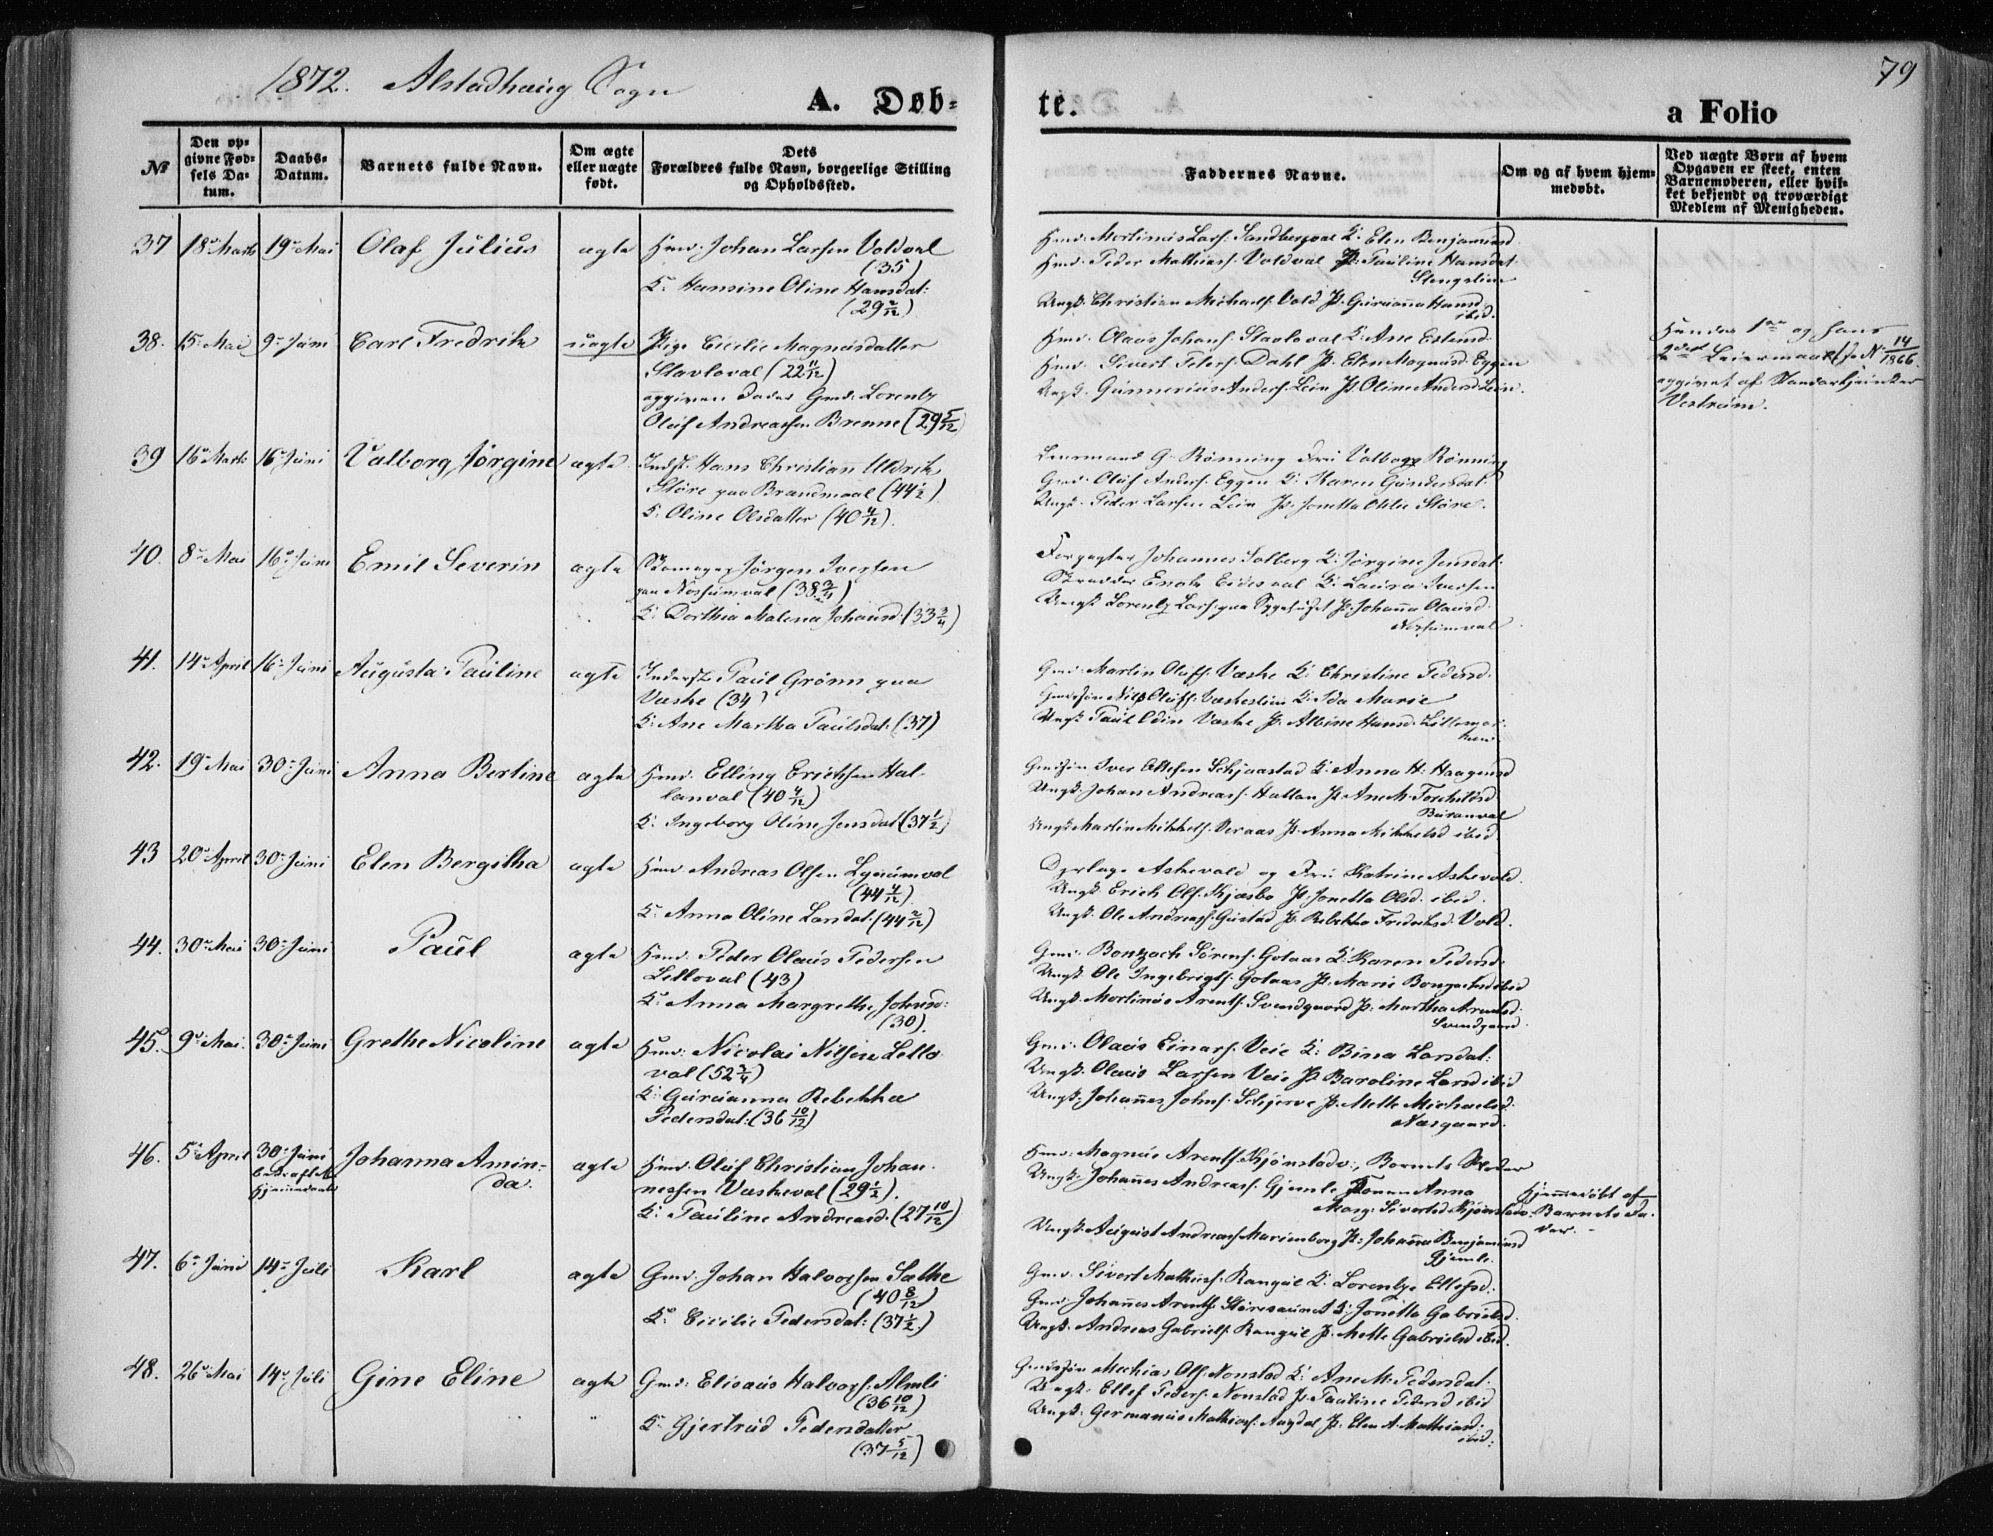 1872. Alstadhaug Sogn
79
A. Døb-
te.
a Folio
№
Den op-
givne Fød-
sels Da-
tum.
Daabs-
Datum.
Barnets fulde Navn.
Om ægte
eller uægte
født.
Dets
Forældres fulde Navn, borgerlige Stilling
og Opholdssted.
Faddernes Navne.
Om og af hvem hjem-
medøbt.
Ved uægte Børn af hvem
Opgaven er skeet, enten
Barnemoderen, eller hvil-
ket bekjendt og troværdigt
Medlem af Menigheden.
37 18 Marts 19 Mai Olaf Julius ægte Hmd: Johan Larsen Voldval
(35)
K: Hansine Oline Hansdat:
(29 2/12)
Hmd: Martinus Lars: Sandbergval K: Elen Benjaminsd
Hmd: Peder Mathias: Voldval P: Pauline Hansdat
Ungk: Christian Michaels: Vold P: Gurianna Hansd
ibid.
38. 15 Mai 9 Juni Carl Fredrik uægte Pige Cecilie Magnusdatter
Stavloval (22 11/12)
opgiven Fader Gmd: Lorents
Oluf Andreassen Brenne (29 5/12)
Hmd: Olaus Johans: Stavloval K: Ane
Hmd: Sivert Peters: Dahl P: Elen Magnusd: Eggen
Ungk: Gunnerius Anders: Lein P: Oline Andersd Lein.
Hendes 1ste og hans
2det Leiermaal (Se N. 14/1866
opgivet af
Vestrum.
39 16 Marts 16 Juni Valborg Jørgine ægte Indst: Hans Christian Uldrik
Støre paa Brandmoal (44 1/2)
K: Oline Olsdatter (40 4/12).
Lensmand G. Rønning Fru Valborg Rønning
Gmd: Oluf Anders: Eggen K: Karen Gundersdat
Ungk: Peder Larsen Lein P: Jonetta Støre.
40. 8 Mai 16 Juni Emil Severin ægte Skomager Jørgen Iversen
paa Nossumval (38 3/4)
K: Dorthea Malena Johansd: (33 3/4)
Forpagter Johannes Solberg K: Jørgine Jensdat:
Skrædder Enok Eidesval K: Laura Iversen
Ungk Lorents Lars: paa Sygehuset P: Johanna Olausd:
Nossumval
41. 14 April 16 Juni Augusta Pauline ægte Inderst Paul Grønn paa
Væske (34)
K: Ane Martha Paulsdat: (37)
Gmd: Martin Olufs: Væske K: Christine Pedersd.
Gmdssøn Nils Olufs: K: Ida Marie
Ungk Paul Odin Væske P: Albine Hansd:
42. 19 Mai 30 Juni Anna Bertine ægte Hmd: Elling Erichsen Hal-
lanval (40 4/12)
K: Ingeborg Oline Jensdat (37 1/2)
Gmdssøn Iver Ottesen Schjaastad K: Anna H: Haagensd
Ungk: Johan Andreas: Hallan P: Ane M: Torchilsd
Ungk: Martin Mikkels: Veraas P: Anna Mikkelsd ibid
43 20 April 30 Juni Elen Bergitha ægte Hmd Andreas Olsen Lynumval
(44 4/12)
K: Anna Oline Larsdat: (44 2/12)
Dyrlæge Askevold og Fru Katrine Askevold.
Ungk Erich Ols: Kjæsbo P: Jonetta Olsd: ibid.
Ungk: Ole Andreas: Gustad P: Rebekka Frederiksd: Vold.
44. 30 Mai 30 Juni Paul ægte Hmd: Peder Olaus Pedersen
Lelloval (43)
K: Anna Margrethe Johnsd:
(30).
Gmd: Bonsach Sørens: Golaas K: Karen Pedersd:
Ungk: Ole Ingebrigts: Golaas P: Marie ibid
Ungk: Martinus Arents: Svendgaard P: Martha Arentsd
Svendgaard.
45. 9 Mai. 30 Juni Grethe Nicoline ægte Hmd: Nicolai Nilsen Lello
val (52 3/4)
K: Gurianna Rebekka
Pedersdat: (36 10/12)
Gmd: Olaus Einars: Veie K: Bina Larsdat:
Ungk: Olaus Larsen Veie P: Baroline Larsd ibid
Ungk: Johannes Johns: Schjerve P: Mette Michaelsd:
Næsgaard.
46. 5 April 30 Juni Johanna Amin-
da.
bekræftet
Hjemmedaab
ægte Hmd. Oluf Christian Johan-
nessen Væskeval (29 1/2).
K: Pauline Andreasd. (27 10/12)
Hmd: Magnus Arents: Kjønstadv:, Barnets Moder
Ungk: Johannes Andreas: Gjemle Konen Anna
Marg: Sivertsd Kjønstadv:
Ungk: August Andreas: Marienborg P: Johanna Benjaminsd
Gjemle.
Hjemmedøbt af
Barnets Fa-
der. -
47. 6 Juni 14 Juli Karl ægte Gmd. Johan Halvorsen Salthe
(40 8/12)
K: Cecilie Pedersdat: (37 1/2)
Gmd: Sivert Mathias: Rangul K: Lorentze Ellefsd:
Gmd: Johannes Arents: K: Jonetta Gabrielsd.
Ungk: Andreas Gabriels: Rangul P: Mette Gabrielsd ibid.
48. 26 Mai 14 Juli Gine Eline ægte Gmd: Elisæus Halvors: Almli
(36 10/12)
K: Gjertrud Pedersdatter
(37 5/12)
Gmdssøn Mathias Ols: Nonstad K: Ane M: Pedersdat.
Ungk: Ellef Peders: Nonstad P: Pauline Pedersd ibid
Ungk: Germanus Mathias: P: Elen A. Mathiasd:
ibid: